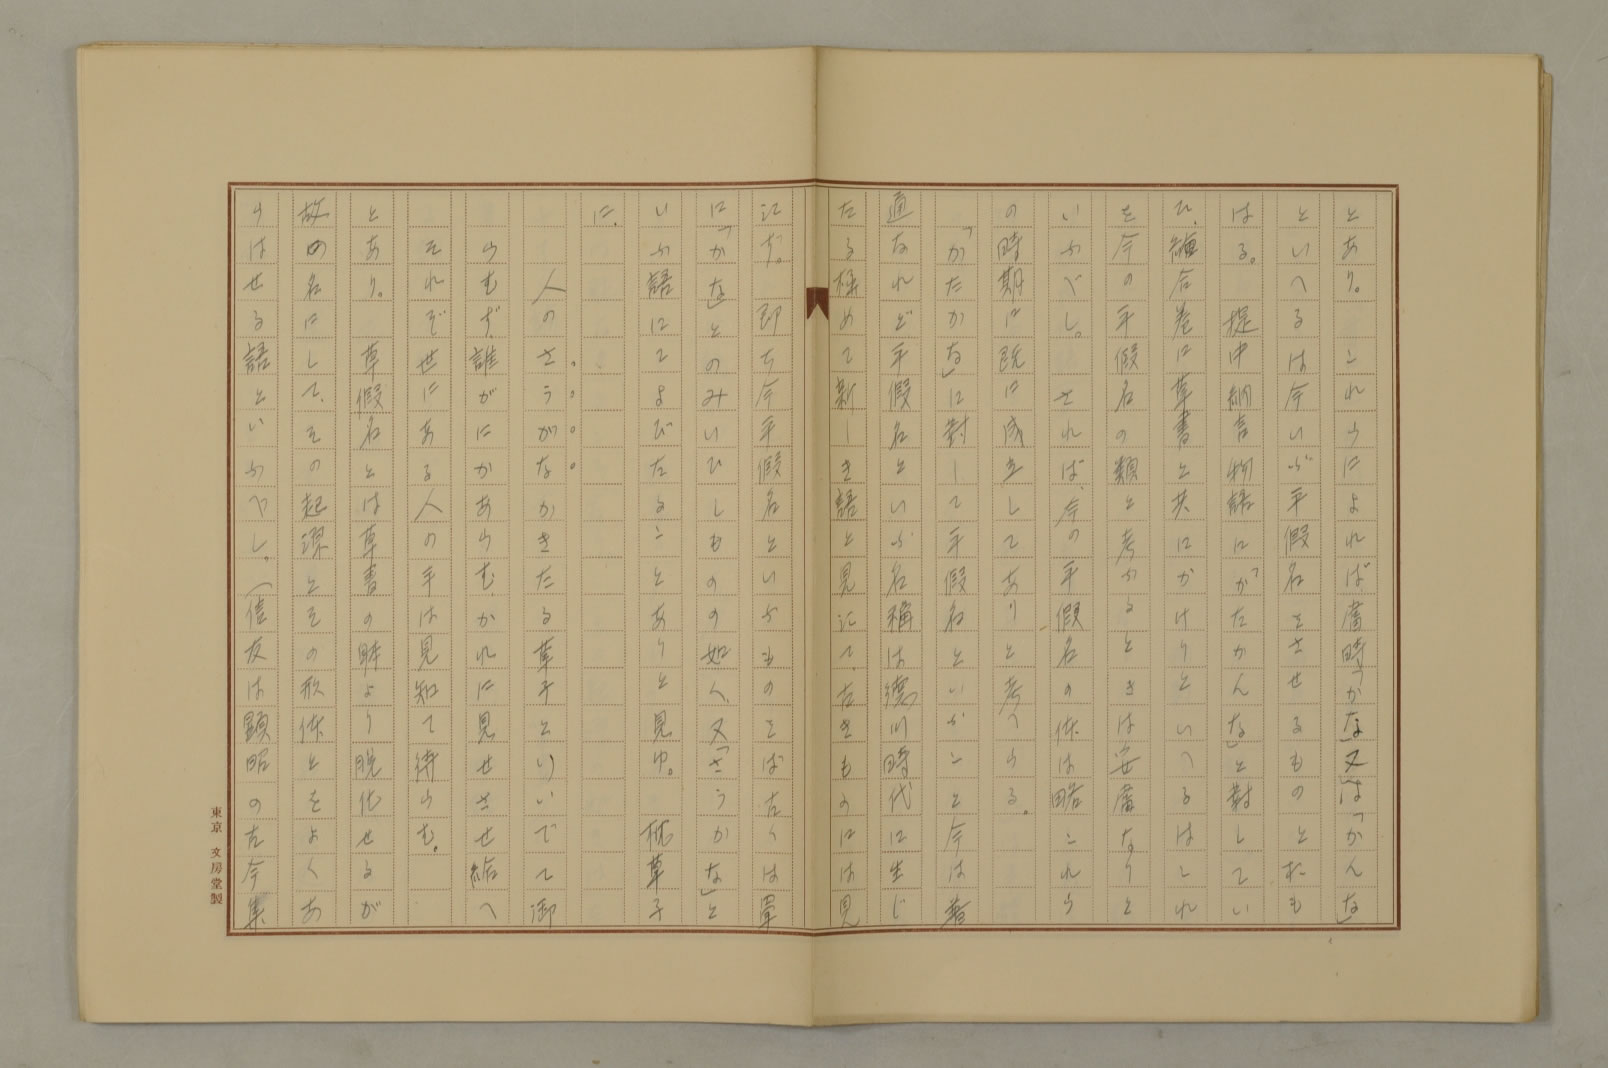 とあり。　これらによれば、當時「かな」又は「かんな」
といへるは今いふ平假名をさせるものとおも
はる。　堤中納言物語に「かたかんな」と對してい
ひ、繪合卷に草書と共にかけりといへるはこれ
を今の平假名の類と考ふるときは妥當なりと
いふべし。　されば、今の平假名の体は略これら
の時期に既に成立してありと考へらる。
「かたかな」に對して平假名といふこと今は普
通なれど平假名といふ名稱は德川時代に生じ
たる極めて新しき語と見江て、古きものには見
江ず。　即ち今平假名といふものをば古くは單
に「かな」とのみいひしものの如く、又「さうかな」と
いふ語にてよびたることありと見ゆ。　枕草子
に、
人のさうがなかきたる草子とりいでて御
らむず、誰がにかあらむ、かれに見せさせ給へ
それぞ世にある人の手は見知て待らむ。
とあり。　草假名とは草書の畔より脱化せるが
故の名にして、その起源とその形体とをよくあ
らはせる語といふべし。（信友は顯昭の古今集
東京 文房堂製